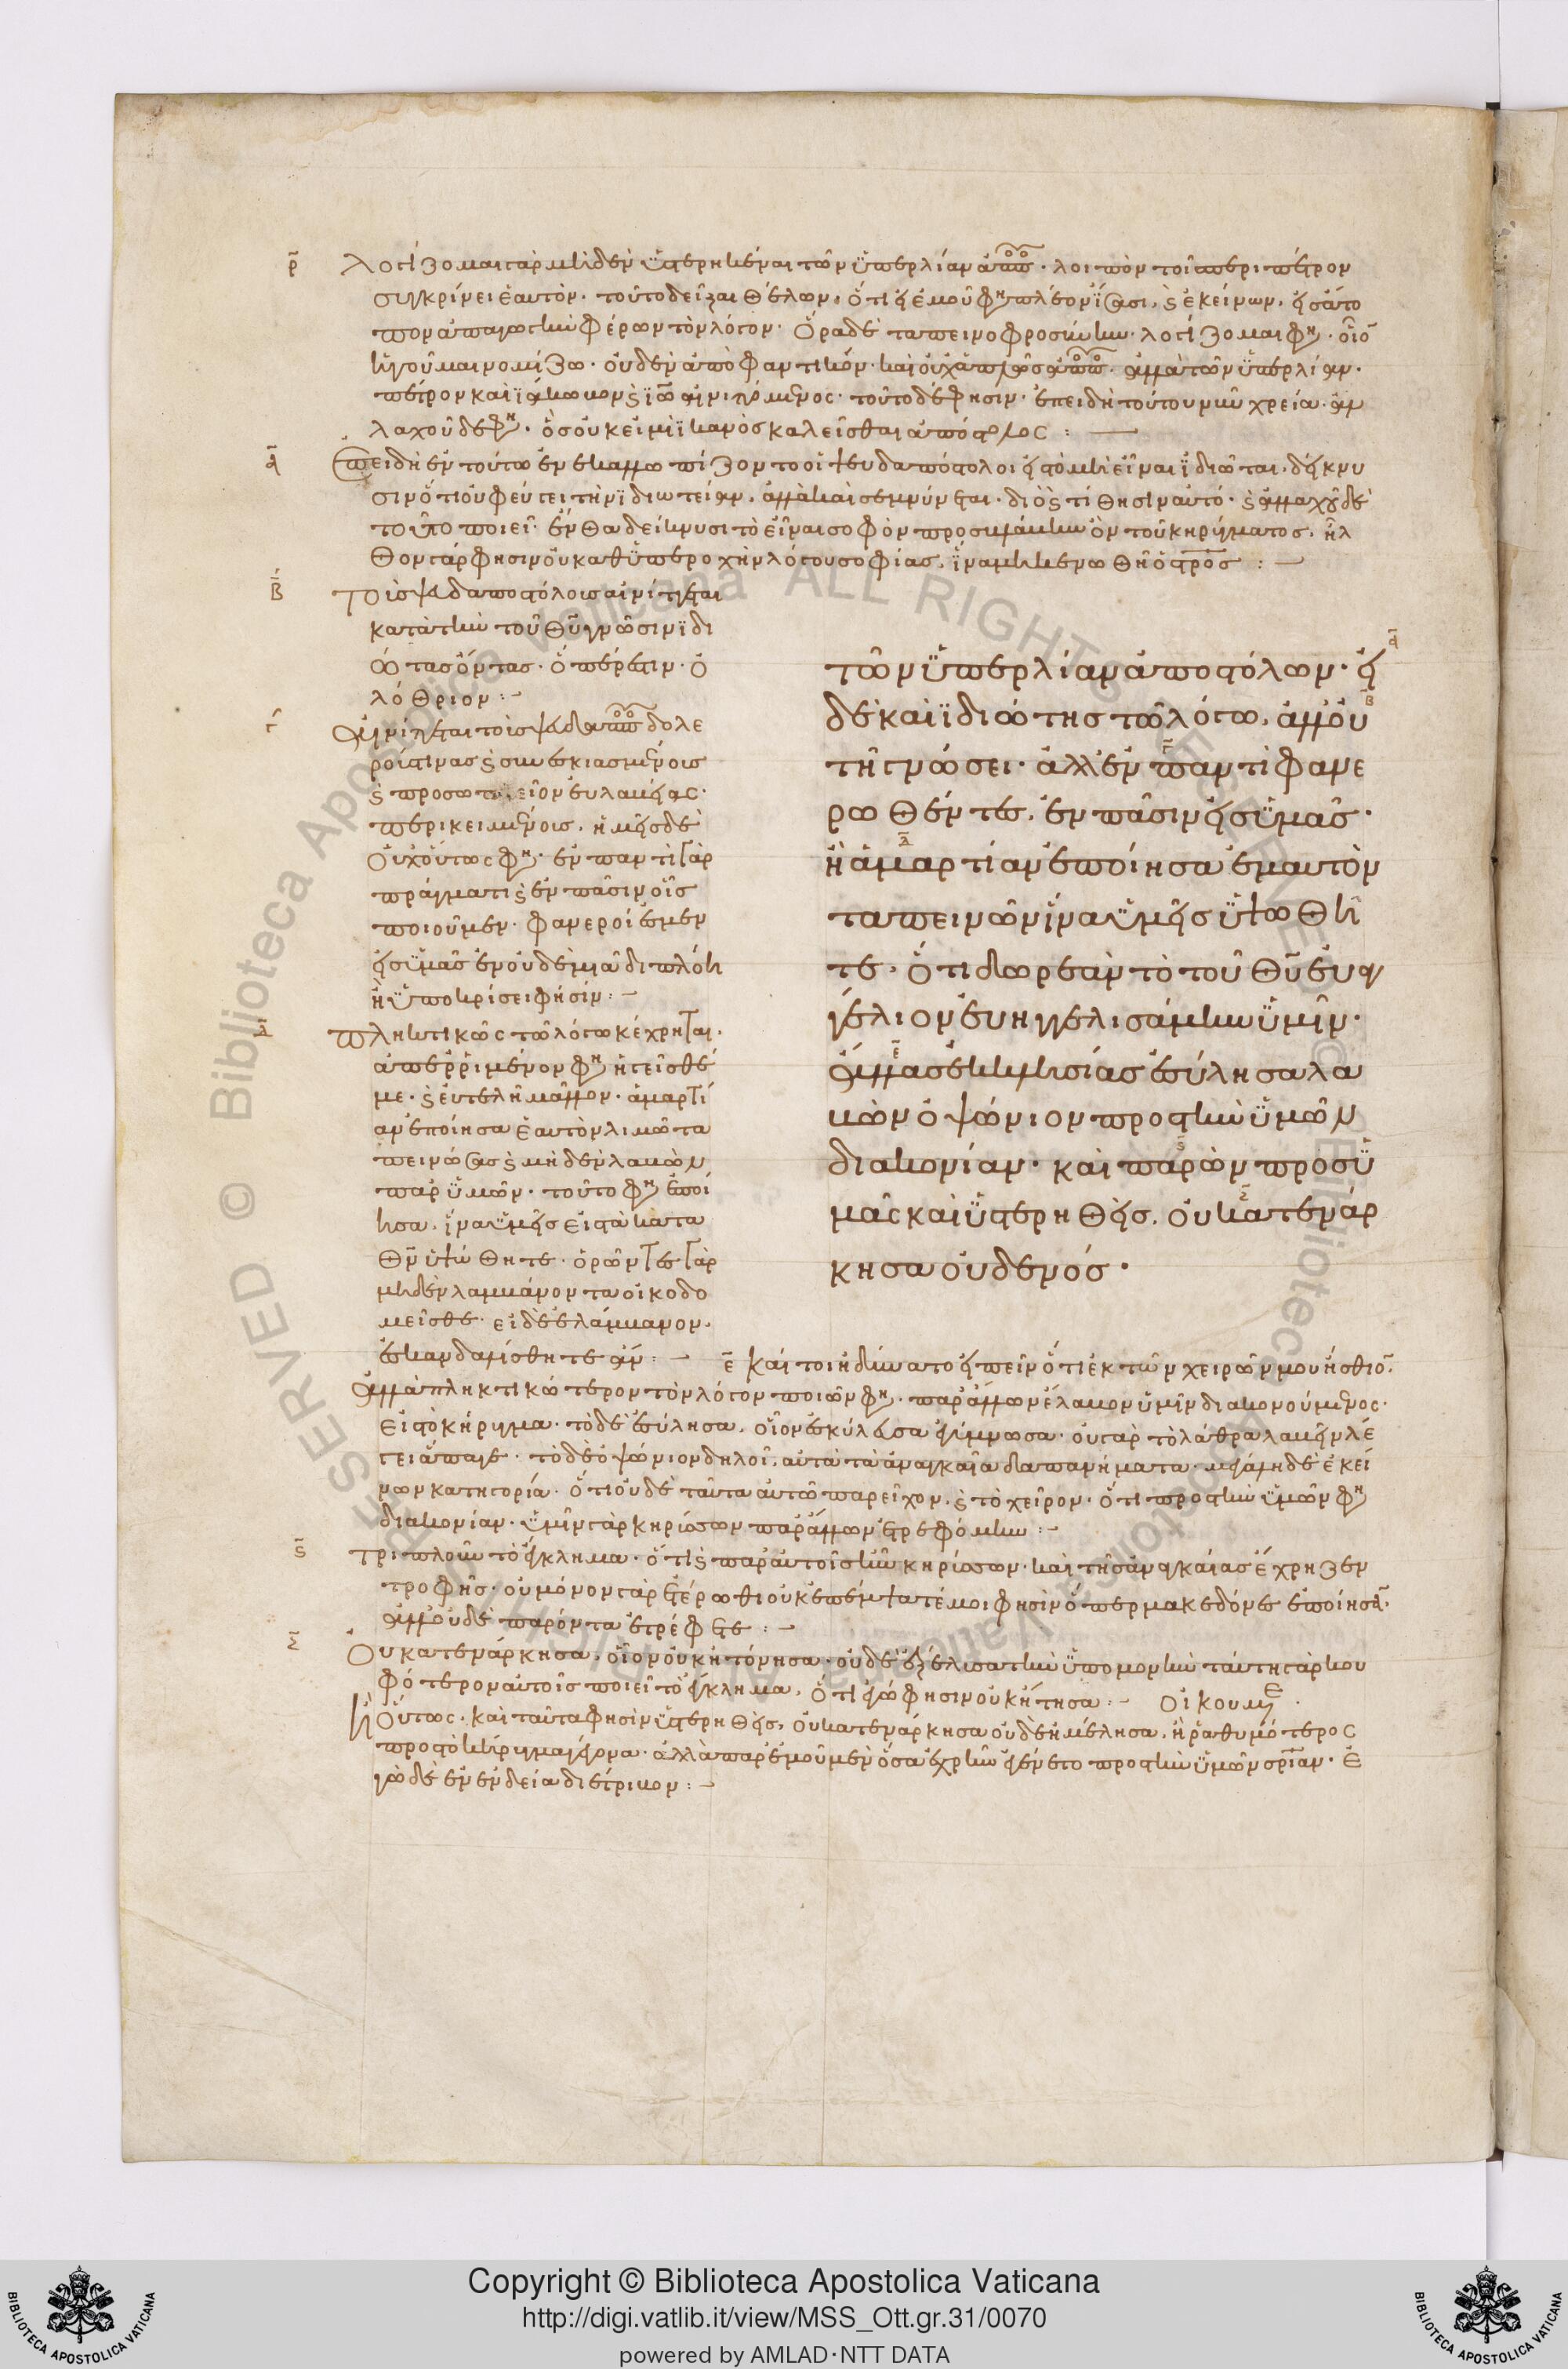 ρ̄ λογίζομαι γὰρ μηδὲν ὑστερηκέναι τῶν ὑπερλίαν ἀποστόλων. λοιπὸν τοῖς περὶ πέτρον
συγκρίνει ἑαυτὸν. τοῦτο δεῖξαι θέλων, ὅτι εἰ ἐμοῦ φη πλέον ἴσασι, καὶ ἐκείνων. εἰς ἄτο
πον ἀπαγωγὴν φέρων τὸν λόγον. ὅρα δὲ ταπεινοφροσύνην. λογίζομαι φη. οἷο
ἡγοῦμαι νομίζω. οὐδὲν ἀποφαντικόν. καὶ οὐχ ἁπλῶς ἀποστόλων. ἀλλὰ τῶν ὑπερλίαν.
πέτρον καὶ ἰάκωβον καὶ ἰω αἰνιττόμενος. τοῦτο δέ φησιν. ἐπειδὴ τούτου νῦν χρεία. ἀλ
λαχοῦ δέ φη. ὃς οὐκ εἰμὶ ἱκανὸς καλεῖσθαι ἀπόστολος :
ᾱ ἐπειδὴ ἐν τούτω ἐνεκαλλωπίζοντο οἱ ψευδαπόστολοι εἰς τὸ μὴ εἶναι ἰδιῶται, δείκνυ
σιν ὅτι οὐ φεύγει τὴν ἰδιωτείαν, ἀλλὰ καὶ σεμνύνεται. διὸ καὶ τίθησιν αὐτό. καὶ ἀλλαχοῦ δὲ
τοῦτο ποιεῖ. ἔνθα δείκνυσι τὸ εἶναι σοφὸν προσβλάβην ὂν τοῦ κηρύγματος. ἦλ
θον γάρ φησιν οὐ καθ ὑπεροχὴν λόγου σοφίας, ἵνα μὴ κενωθῆ ὁ σταυρὸς :
β̄ τοῖς ψευδαποστόλοις αἰνίττεται
κατὰ τὴν τοῦ θῦ γνῶσιν ἰδι
ώτας ὄντας. ὅπερ ἐστιν. ὀ
λέθριον :
γ̄ αἰνίττεται τοῖς ψευδαποστόλοις δολε
ροί τινας καὶ συνεσκιασμένοις
καὶ προσωπεῖον εὐλαβείας
περικειμένοις. ἡμεῖς δὲ
οὐχ οὕτως φη. ἐν παντὶ γὰρ
πράγματι καὶ ἐν πᾶσιν οἷς
ποιοῦμεν. φανεροί ἐσμεν
εἰς ὑμᾶς ἐν οὐδεμιᾶ διπλόη
ἢ ὑποκρίσει φησίν :
δ̄ πληκτικῶς τῶ λόγω κέχρηται.
ἀπερριμένον φη ἡγεῖσθέ
με. καὶ εὐτελῆ μᾶλλον. ἁμαρτί
αν ἐποίησα ἑαυτὸν λιμῶ τα
πεινώσας καὶ μηδὲν λαβὼν
παρ ὑμῶν. τοῦτο φη ἐποί
ησα, ἵνα ὑμεῖς εἰς τὰ κατα
θν ὑψώθητε. ὁρῶντες γὰρ
μηδὲν λαμβάνοντα οἰκοδο
μεῖσθε. εἰ δὲ ἐλάμβανον.
ἐσκανδαλίσθητε ἄν :
τῶν ὑπερλίαν ἀποστόλων. εἰ
δὲ καὶ ἰδιώτης τῶ λόγω. ἀλλ οὐ
τῆ γνώσει. ἀλλ ἐν παντὶ φανε
ρωθέντες, ἐν πᾶσιν εἰς ὑμᾶς.
ἢ ἁμαρτίαν ἐποίησα ἐμαυτὸν
ταπεινῶν ἵνα ὑμεῖς ὑψωθῆ
τε. ὅτι δωρεὰν τὸ τοῦ θῦ εὐαγ
γέλιον εὐηγγελισάμην ὑμῖν.
ἄλλας ἐκκλησίας ἐσύλησα λα
βὼν ὀψώνιον πρὸς τὴν ὑμῶν
διακονίαν. καὶ παρὼν πρὸς ὑ
μᾶς καὶ ὑστερηθεὶς. οὐ κατενάρ
κησα οὐδενός.
ε̄ καί τοι ἠδύνατο εἰπεῖν ὅτι ἐκ τῶν χειρῶν μου ἤσθιον.
ἀλλὰ πληκτικώτερον τὸν λόγον ποιῶν φη. παρ ἄλλων ἔλαβον ὑμῖν διακονούμενος.
εἰς τὸ κήρυγμα. τὸ δὲ ἐσύλησα, οἷον ἐσκύλευσα ἐγύμνωσα. οὐ γὰρ τὸ λάθρα λαβεῖν λέ
γει ἄπαγε. τὸ δὲ ὀψώνιον δηλοῖ. αὐτὰ τὰ ἀναγκαῖα δαπανήματα. μεγάλη δὲ ἐκεί
νων κατηγορία. ὅτι οὐδὲ ταῦτα αὐτῶ παρεῖχον. καὶ τὸ χεῖρον. ὅτι πρὸς τὴν ὑμῶν φη
διακονίαν. ὑμῖν γὰρ κηρύσσων παρ ἄλλων ἐτρεφόμην :
ϛ̄ τριπλοῦν τὸ ἔγκλημα. ὅτι καὶ παρ αὐτοῖς ἦν κηρύσσων. καὶ τῆς ἀναγκαίας ἔχρηζεν
τροφῆς. οὐ μόνον γὰρ ἑτέρωθι οὐκ ἐπέμψατέ μοι φησὶν ὅπερ μακεδόνες ἐποίησαν.
ἀλλ οὐδὲ παρόντα ἐτρέφετε :
ζ̄ οὐ κατενάρκησα, οἷον οὐκ ἠτόνησα. οὐδὲ ἐξέλιπα τὴν ὑπομονὴν ταύτη γὰρ κου
φότερον αὐτοῖς ποιεῖ τὸ ἔγκλημα, ὅτι ἐγώ φησιν οὐκ ἤτησα : οἰκουμε
ἢ οὕτως. καὶ ταῦτα φησὶν ὑστερηθεὶς, οὐ κατενάρκησα οὐδὲ ἠμέλησα, ἢ ῥαθυμότερος
πρὸς τὸ κήρυγμα γέγονα. ἀλλὰ παρ ἐμοῦ μὲν ὅσα ἐχρῆν ἐγένετο πρὸς τὴν ὑμῶν σρίαν. ἐ
γὼ δὲ ἐν ἐνδεία διέτριβον :
Copyright © Biblioteca Apostolica Vaticana
http://digi.vatlib.it/view/MSS_Ott.gr.31/0070
powered by AMLAD·NTT DATA